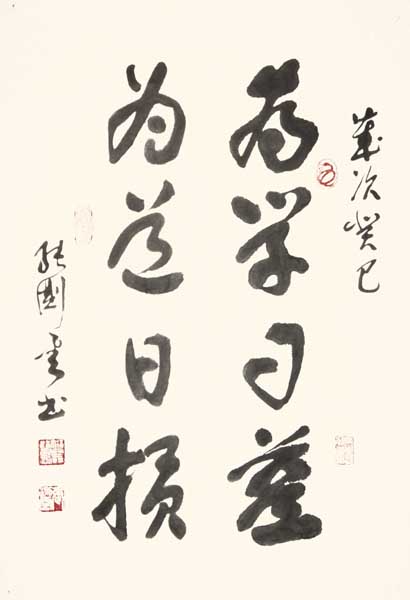 歲次癸巳
為學日益
為道日損
書